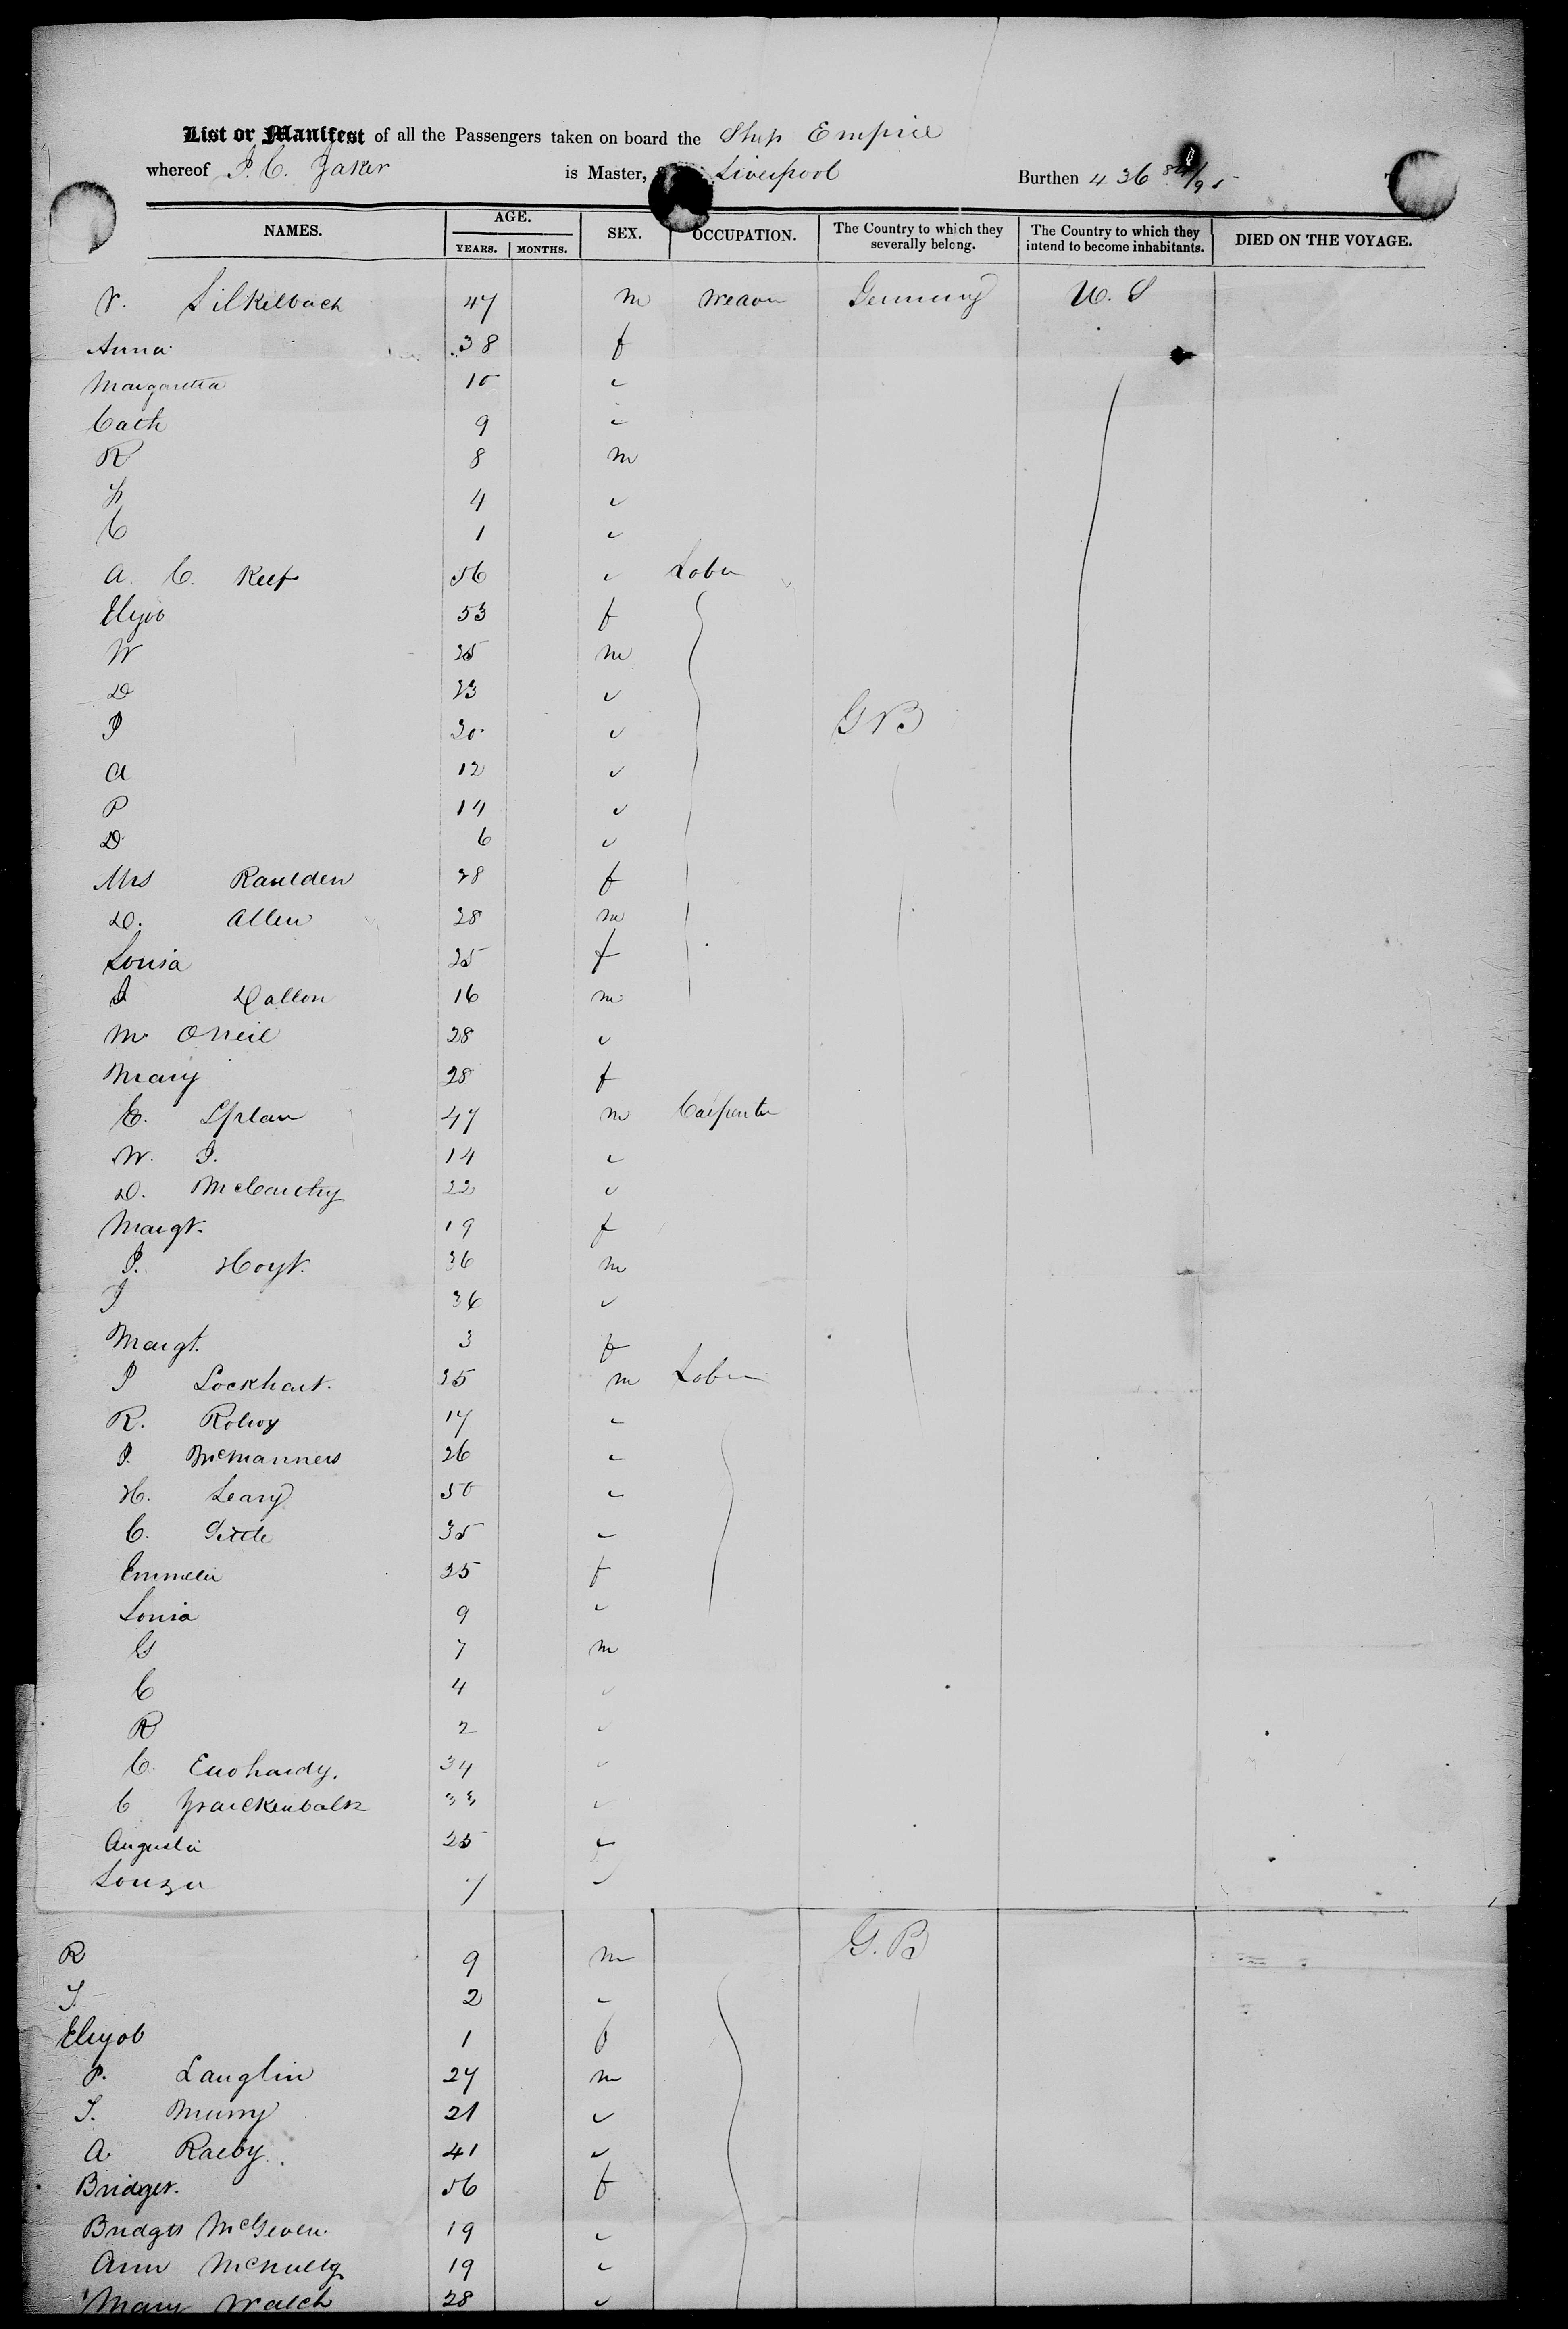 List or Manifest of all the Passengers taken on board the Ship Empire
whereof J. C. Zaker is Master, Liverpool Burthen 436 84/95
NAMES. AGE. YEARS. MONTHS. SEX. OCCUPATION. The Country to which they severally belong. The Country to which they intend to become inhabitants. DIED ON THE VOYAGE.
V. Silkelbach 47 m Weaver Germany U. S
Anna 38 f
Margaretta 10 "
Cath 9 "
R 8 m
H 4 "
C 1 "
A. C. Keef 56 " Labor
Elizab 53 f
W 25 m
D 23 "
J 20 " G B
A 12 "
P 14 "
D 6 "
Mrs Raulden 28 f
D. Allen 28 m
Louisa 25 f
J Dallon 16 m
M ONeil 28 "
Mary 28 f
E. Uplan 47 m Carpenter
W. J. 14 "
D. McCarthy 22 "
Margt. 19 f
J. Hoyt. 36 m
J 36 "
Margt. 3 f
J Lockhart. 35 m Labor
R. 17 "
J. McManners 26 "
H. Leary 50 "
C. Little 35 "
Emmelia 25 f
Louisa 9 "
G 7 m
C 4 "
R 2 "
C. Euohardy. 34 "
C 33 "
Augusta 25 "
Louiza 7 "
R 9 m G. B
J. 2 "
Elizab 1 f
P. Lauglin 27 m
J. Murry 21 "
A Raeby 41 "
Bridget. 56 f
Bridget McGeven. 19 "
Ann McNulty 19 "
Mary Walch 28 "